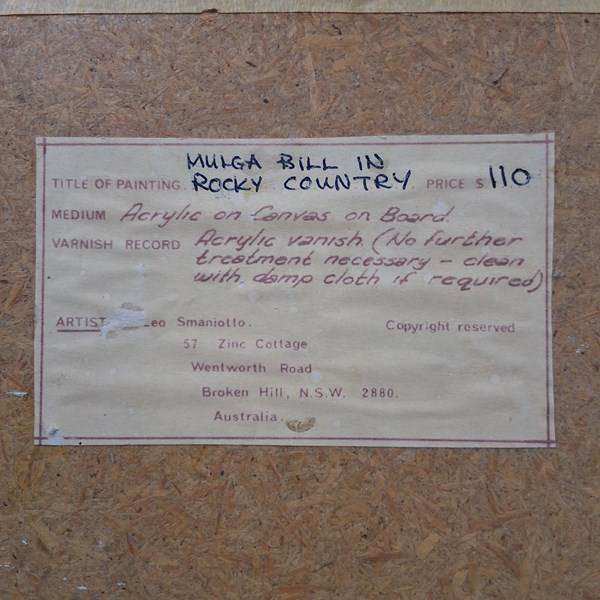 MULGA BILL IN
TITLE OF PAINTING. ROCKY COUNTRY PRICE $ 110
MEDIUM Acrylic on Canvas on Board
VARNISH RECORD Acrylic vanish. (No further
treatment necessary – clean
with damp cloth if required)
ARTIST Leo Smaniotto. Copyright reserved
57 Zinc Cottage
Wentworth Road
Broken Hill, N.S.W. 2880.
Australia.